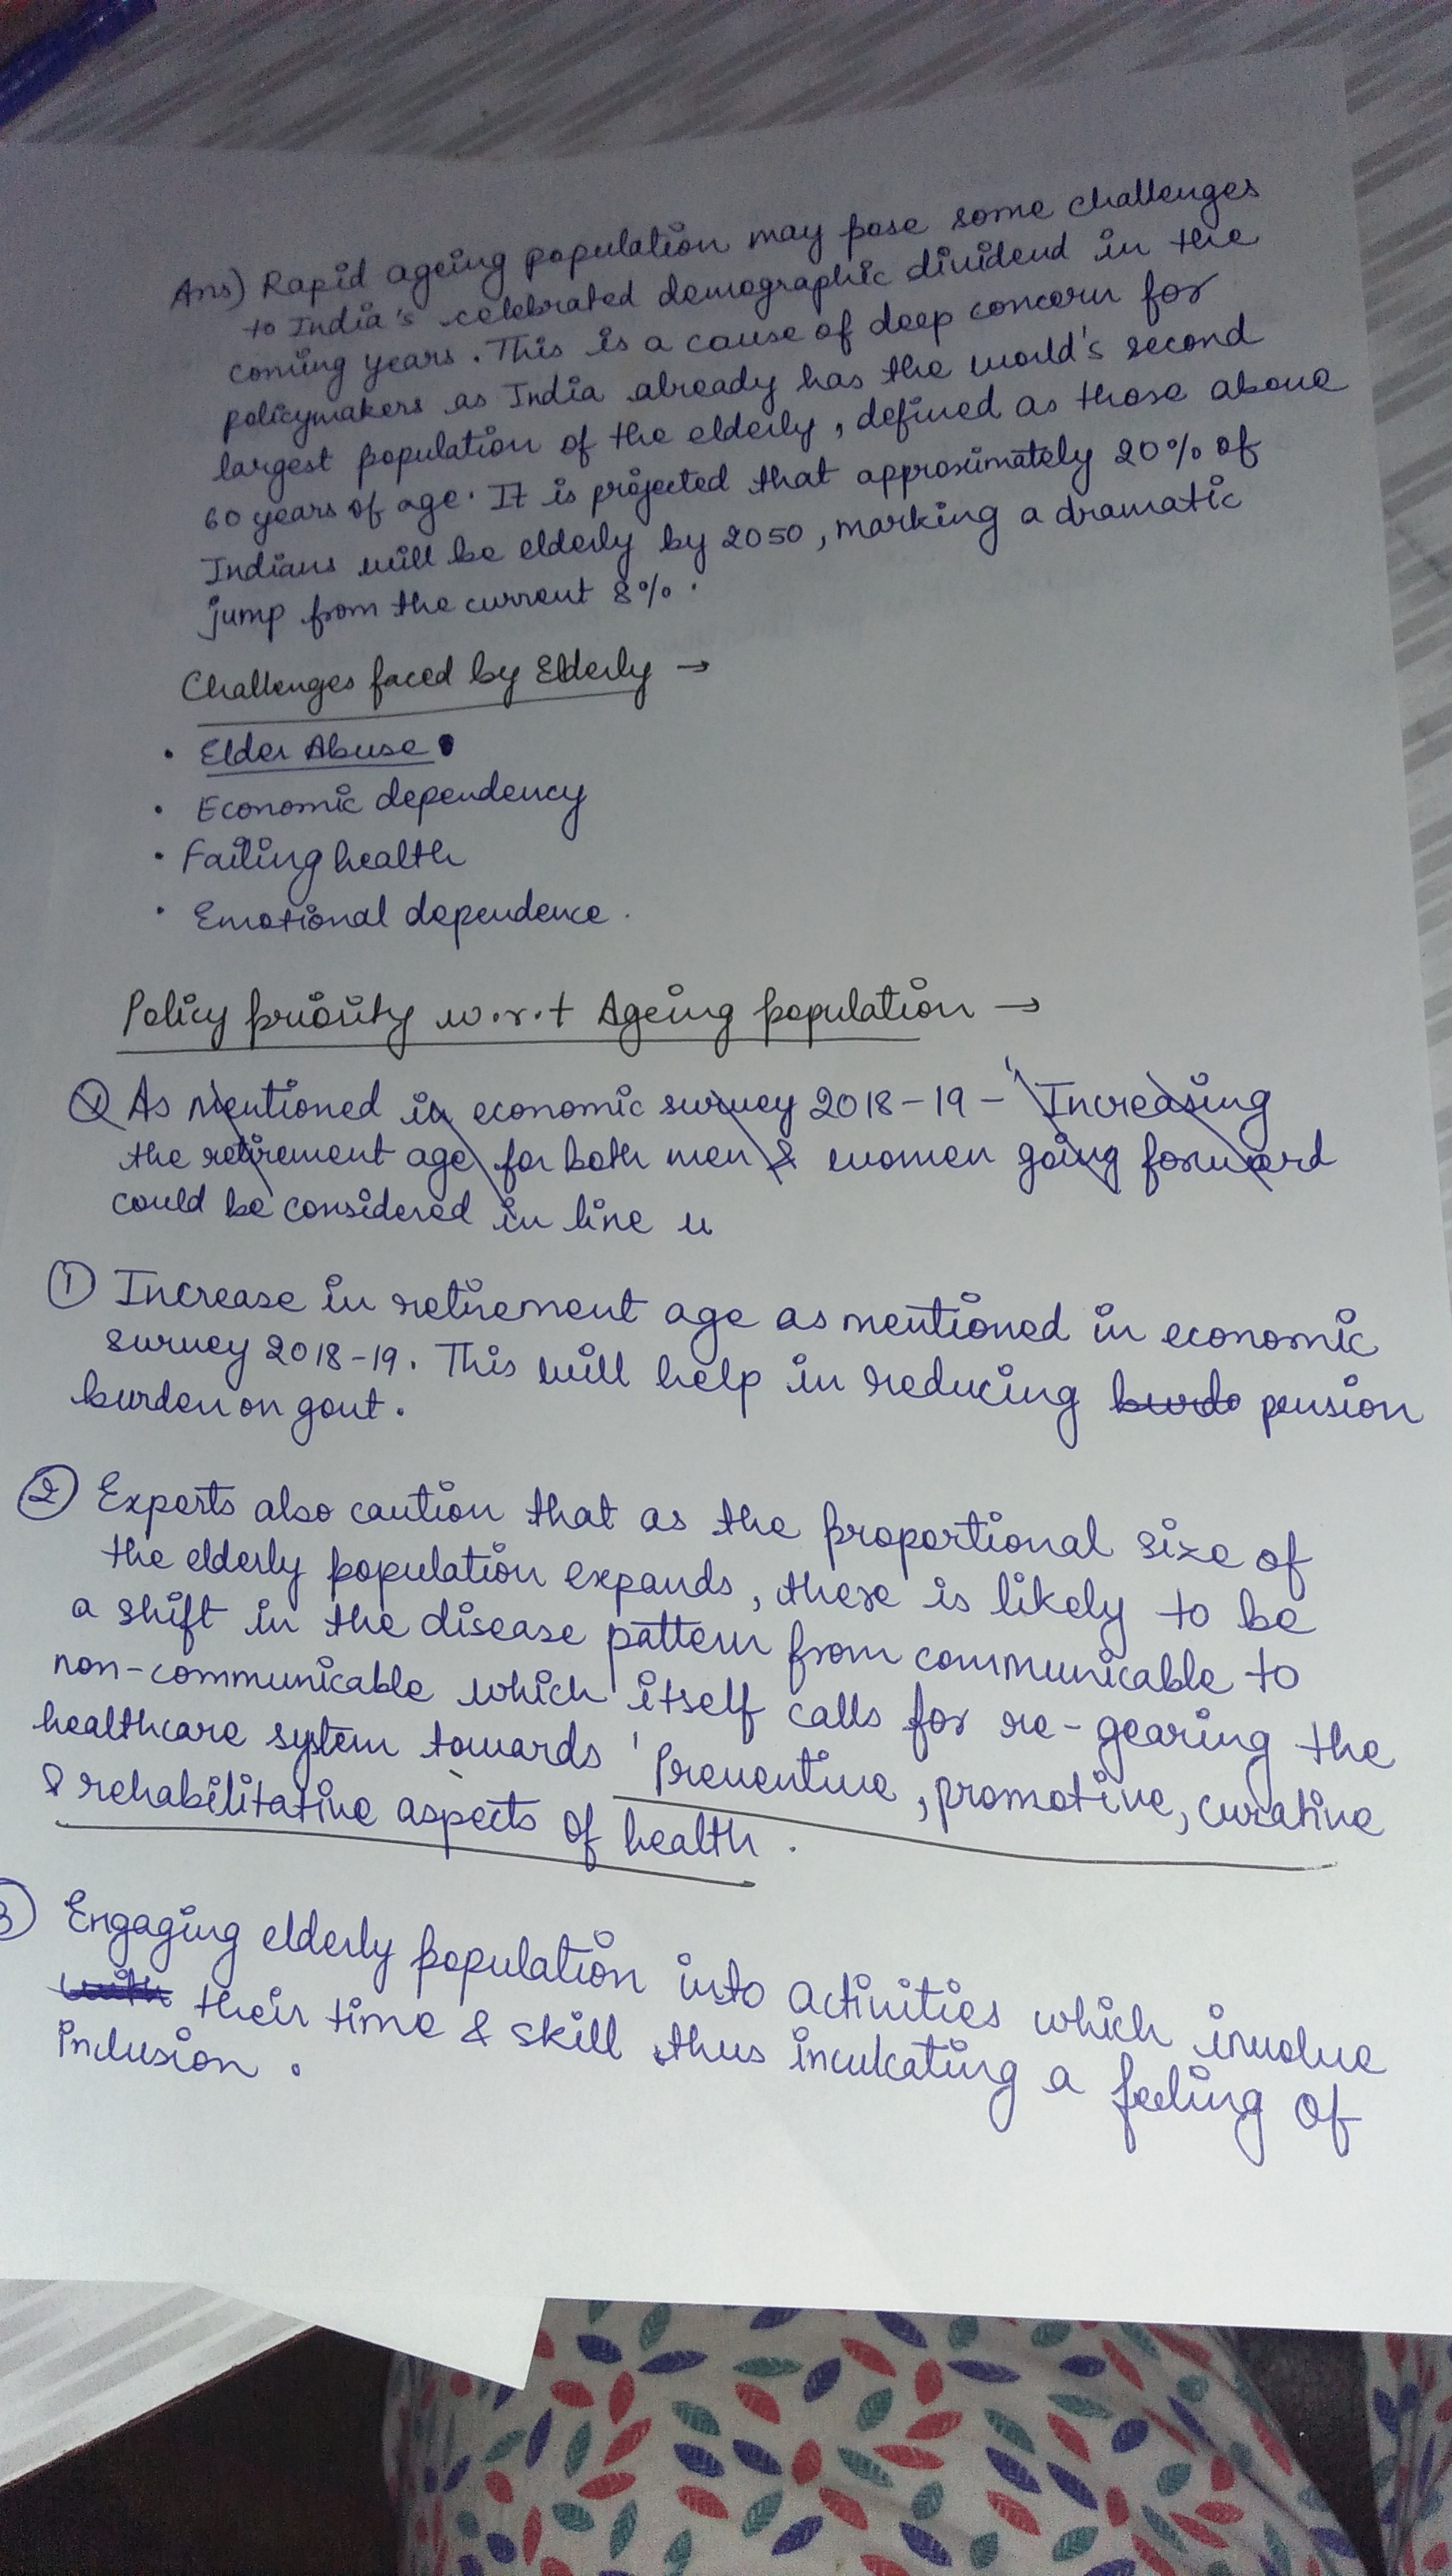 Ans) Rapid ageing population may pose some challenges
to India's celebrated demographic dividend in the
coming years. This is a cause of deep concern for
policymakers as India already has the world's second
largest population of the elderly, defined as those above
60 years of age. It is projected that approximately 20% of
Indians will be elderly by 2050, marking a dramatic
jump from the current 8%.
Challenges faced by Elderly →
• Elder Abuse
• Economic dependency
• Failing health
• Emotional dependence.
Policy priority w.r.t Ageing population →
① As mentioned in economic survey 2018-19 - 'Increasing
the retirement age for both men & women going forward
could be considered in line
① Increase in retirement age as mentioned in economic
survey 2018-19. This will help in reducing burde pension
burden on govt.
② Experts also caution that as the proportional size of
the elderly population expands, there is likely to be
a shift in the disease pattern from communicable to
non-communicable which itself calls for re-gearing the
healthcare system towards 'Preventive, promotive, curative
& rehabilitative aspects of health.
③ Engaging elderly population into activities which involve
with their time & skill thus inculcating a feeling of
inclusion.